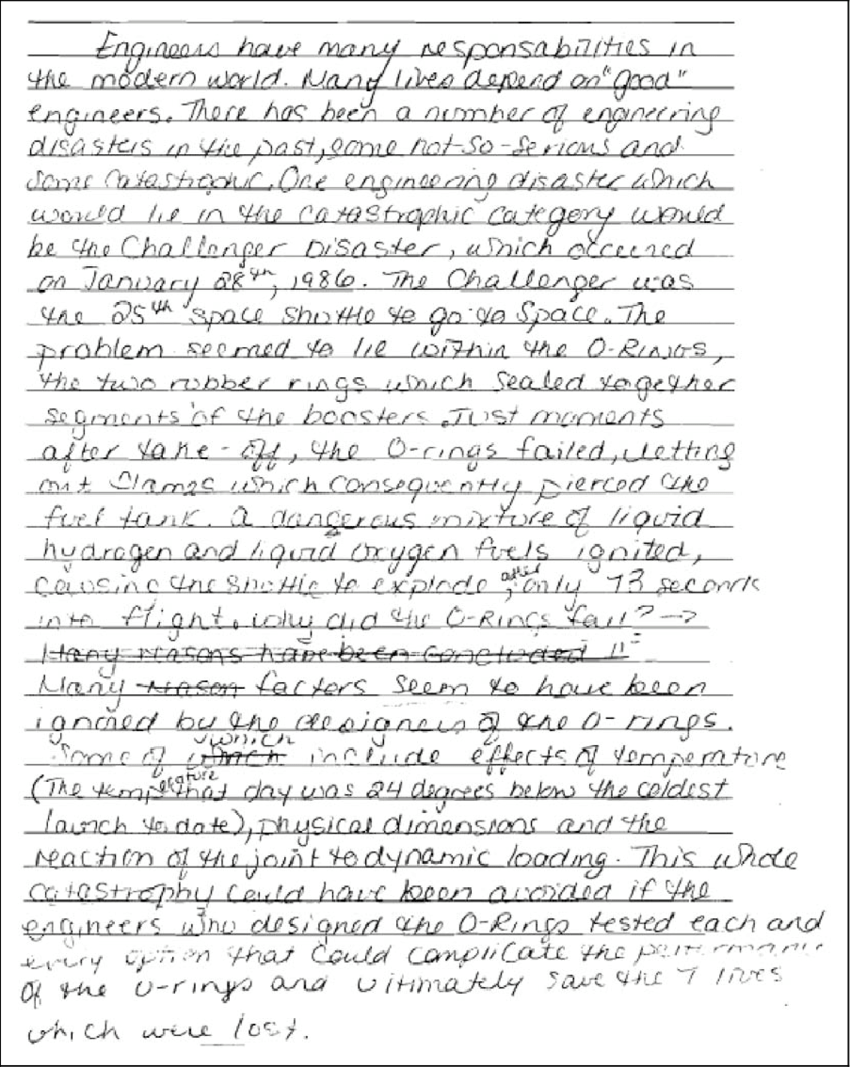 Engineers have many responsabilities in
the modern world. Many lives depend on "good"
engineers. There has been a number of engineering
disasters in the past, some not-so-serious and
some catastrophic. One engineering disaster which
would lie in the catastrophic category would
be the Challenger Disaster, which occured
on January 28th, 1986. The Challenger was
the 25th space shuttle to go to space. The
problem seemed to lie within the O-Rings,
the two rubber rings which sealed together
segments of the boosters. Just moments
after take-off, the O-rings failed, letting
out flames which consequently pierced the
fuel tank. A dangerous mixture of liquid
hydrogen and liquid oxygen fuels ignited,
causing the shuttle to explode, after only 73 seconds
into flight. Why did the O-Rings fail? →
Many reasons have been concluded
Many reason factors seem to have been
ignored by the designers of the O-rings.
Some of which which include effects of temperature
(The temperature that day was 24 degrees below the coldest
launch to date), physical dimensions and the
reaction of the joint to dynamic loading. This whole
catastrophy could have been avoided if the
engineers who designed the O-Rings tested each and
every option that could complicate the performance
of the O-rings and ultimately save the 7 lives
which were lost.